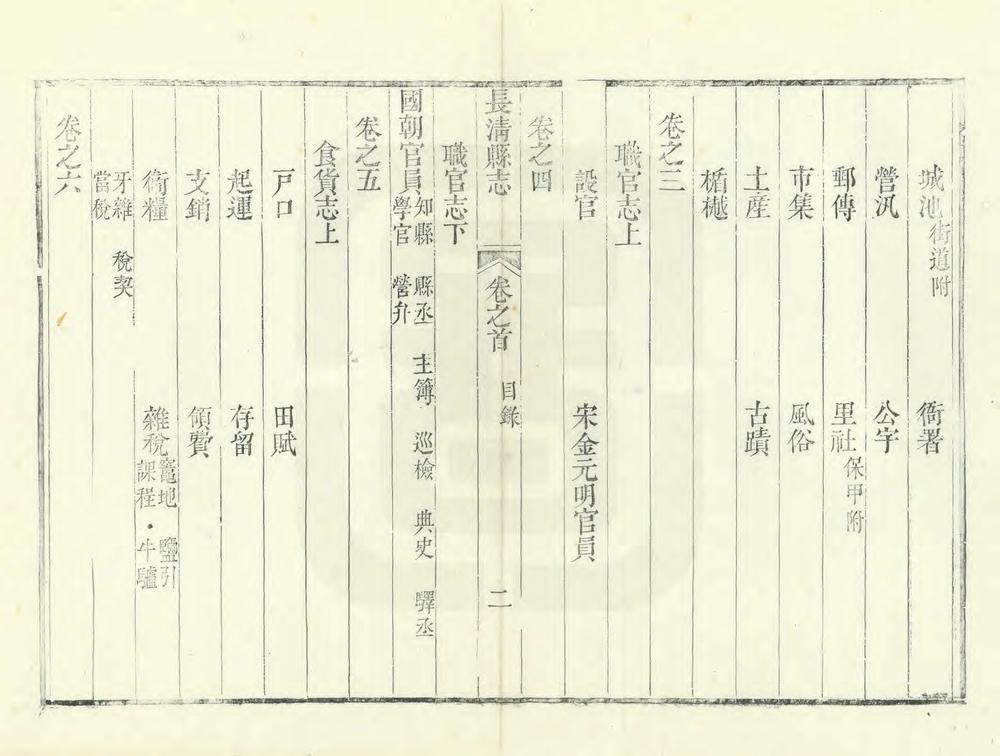 城池街道附 衙署
營汛 公宇
郵傳 里社保甲附
市集 風俗
土產 古蹟
楯樾
卷之三
職官志上
設官 宋金元明官員
卷之四
長淸縣志 卷之首 目錄 二
職官志下
國朝官員知縣 縣丞 主簿 巡檢 典史 驛丞
學官 營弁
卷之五
食貨志上
戸口 田賦
起運 存留
支銷 領費
衛糧 雜稅竈地 鹽引
課程 牛驢
牙雜 稅契
當稅
卷之六